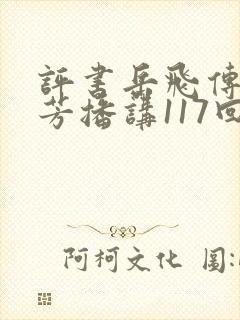 評書岳飛傳
芳播講117回
阿柯文化 圖: